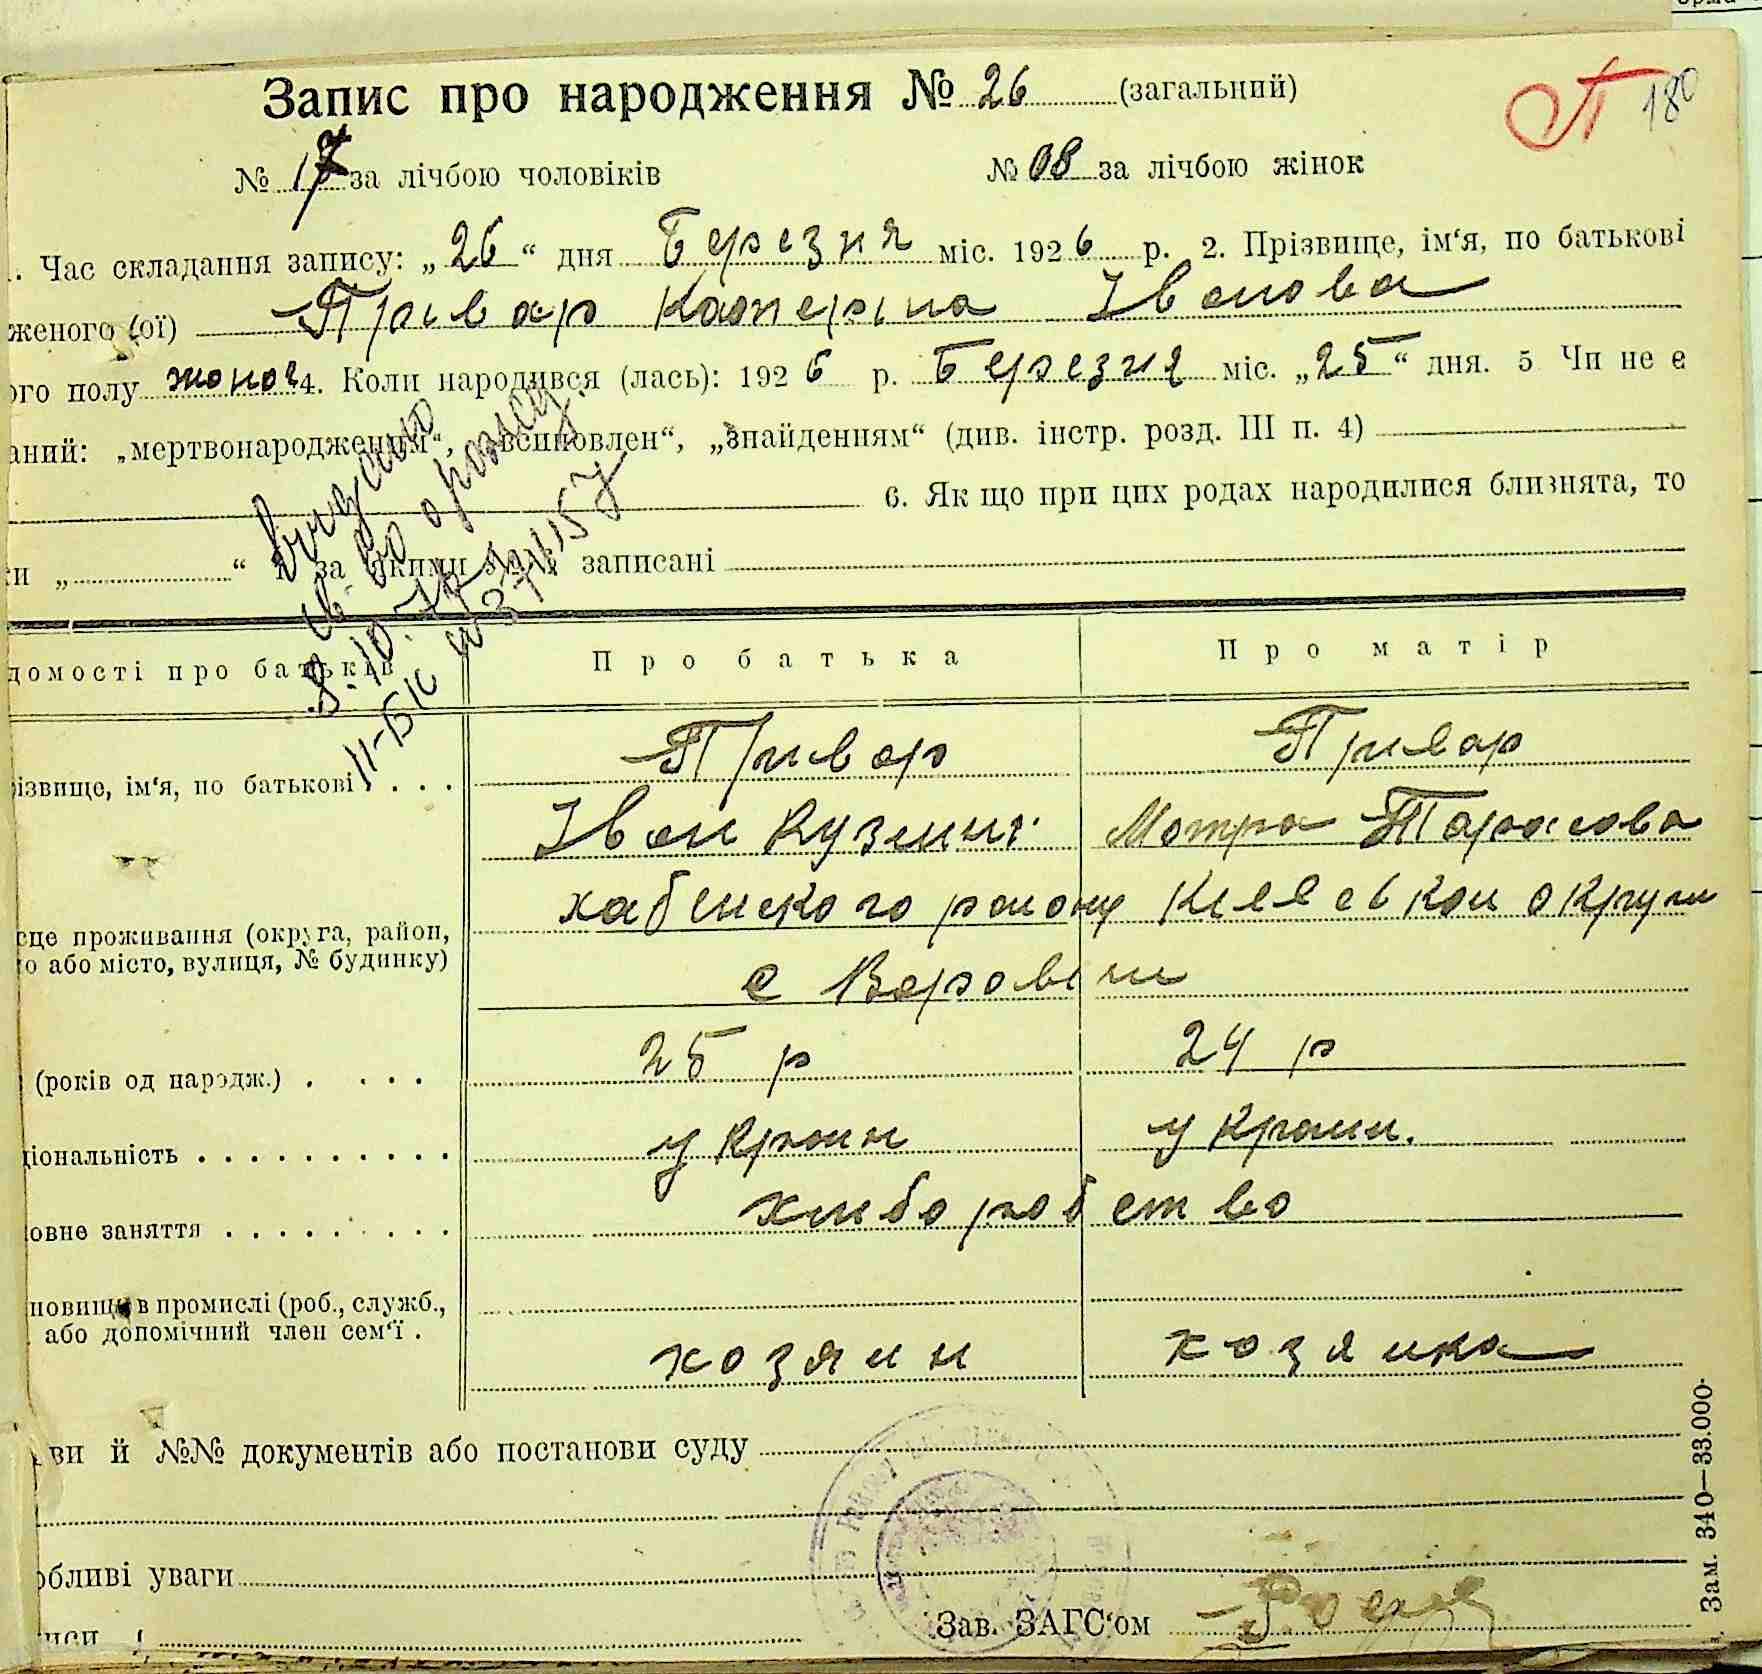 Запис про народження № 26 (загальний)
180
№ 17 за лічбою чоловіків № 08 за лічбою жінок
. Час складання запису: „26“ дня Березня міс. 1926 р. 2. Прізвище, ім‘я, по батькові
женого (ої) Привар Катеріна Іванова
ого полу жоноч 4. Коли народився (лась): 1926 р. Березня міс. „25“ дня. 5 Чи не є
аний: „мертвонародженим“, „всиновлен“, „знайденням“ (див. інстр. розд. III п. 4)
6. Як що при цих родах народилися близнята, то
ки „ “ й за якими №№ записані
Видано
св-во о рожд.
8.10.75
II-БК № 371157
домості про батьків Про батька Про матір
різвище, ім‘я, по батькові Привар Привар
Іван Кузмич Мотра Тарасова
сце проживання (округа, район, хабенского району Киевскои округи
о або місто, вулиця, № будинку) с Варовичи
(років од народж.) 25 р 24 р
ціональність украин украин.
овне заняття хлиборобство
новище в промислі (роб., служб.,
або допомічний член сем‘ї . хозяин хозяика
ви й №№ документів або постанови суду
обливі уваги
Зав. ЗАГС‘ом
Зам. 340—33.000.